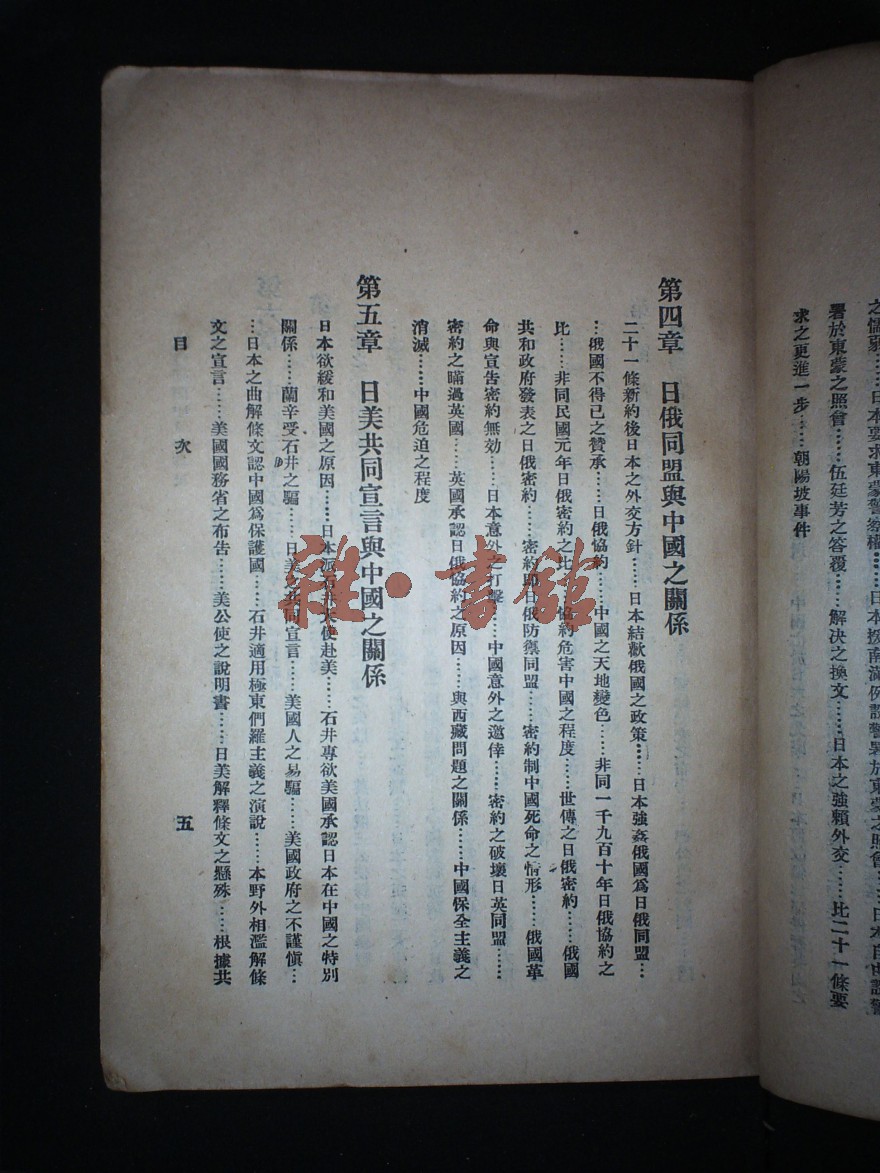 之懦弱……日本要求東蒙警察權……日本援南滿例設警署於東蒙之照會……日本自由設警
署於東蒙之照會……伍廷芳之答覆……解決之換文……日本之強賴外交……比二十一條要
求之更進一步……朝陽坡事件
第四章 日俄同盟與中國之關係
二十一條新約後日本之外交方針……日本結歡俄國之政策……日本強姦俄國爲日俄同盟…
…俄國不得已之贊承……日俄協約……中國之天地變色……非同一千九百十年日俄協約之
比……非同民國元年日俄密約之比……協約危害中國之程度……世傳之日俄密約……俄國
共和政府發表之日俄密約……密約即日俄防禦同盟……密約制中國死命之情形……俄國革
命與宣告密約無効……日本意外之打擊……中國意外之邀倖……密約之破壞日英同盟……
密約之瞞過英國……英國承認日俄協約之原因……與西藏問題之關係……中國保全主義之
消滅……中國危迫之程度
第五章 日美共同宣言與中國之關係
日本欲緩和美國之原因……日本派石井大使赴美……石井專欲美國承認日本在中國之特別
關係……蘭辛受石井之騙……日美之共同宣言……美國人之易騙……美國政府之不謹愼…
…日本之曲解條文認中國爲保護國……石井適用極東們羅主義之演說……本野外相濫解條
文之宣言……美國國務省之布告……美公使之說明書……日美解釋條文之懸殊……根據共
目次 五
雜·書館